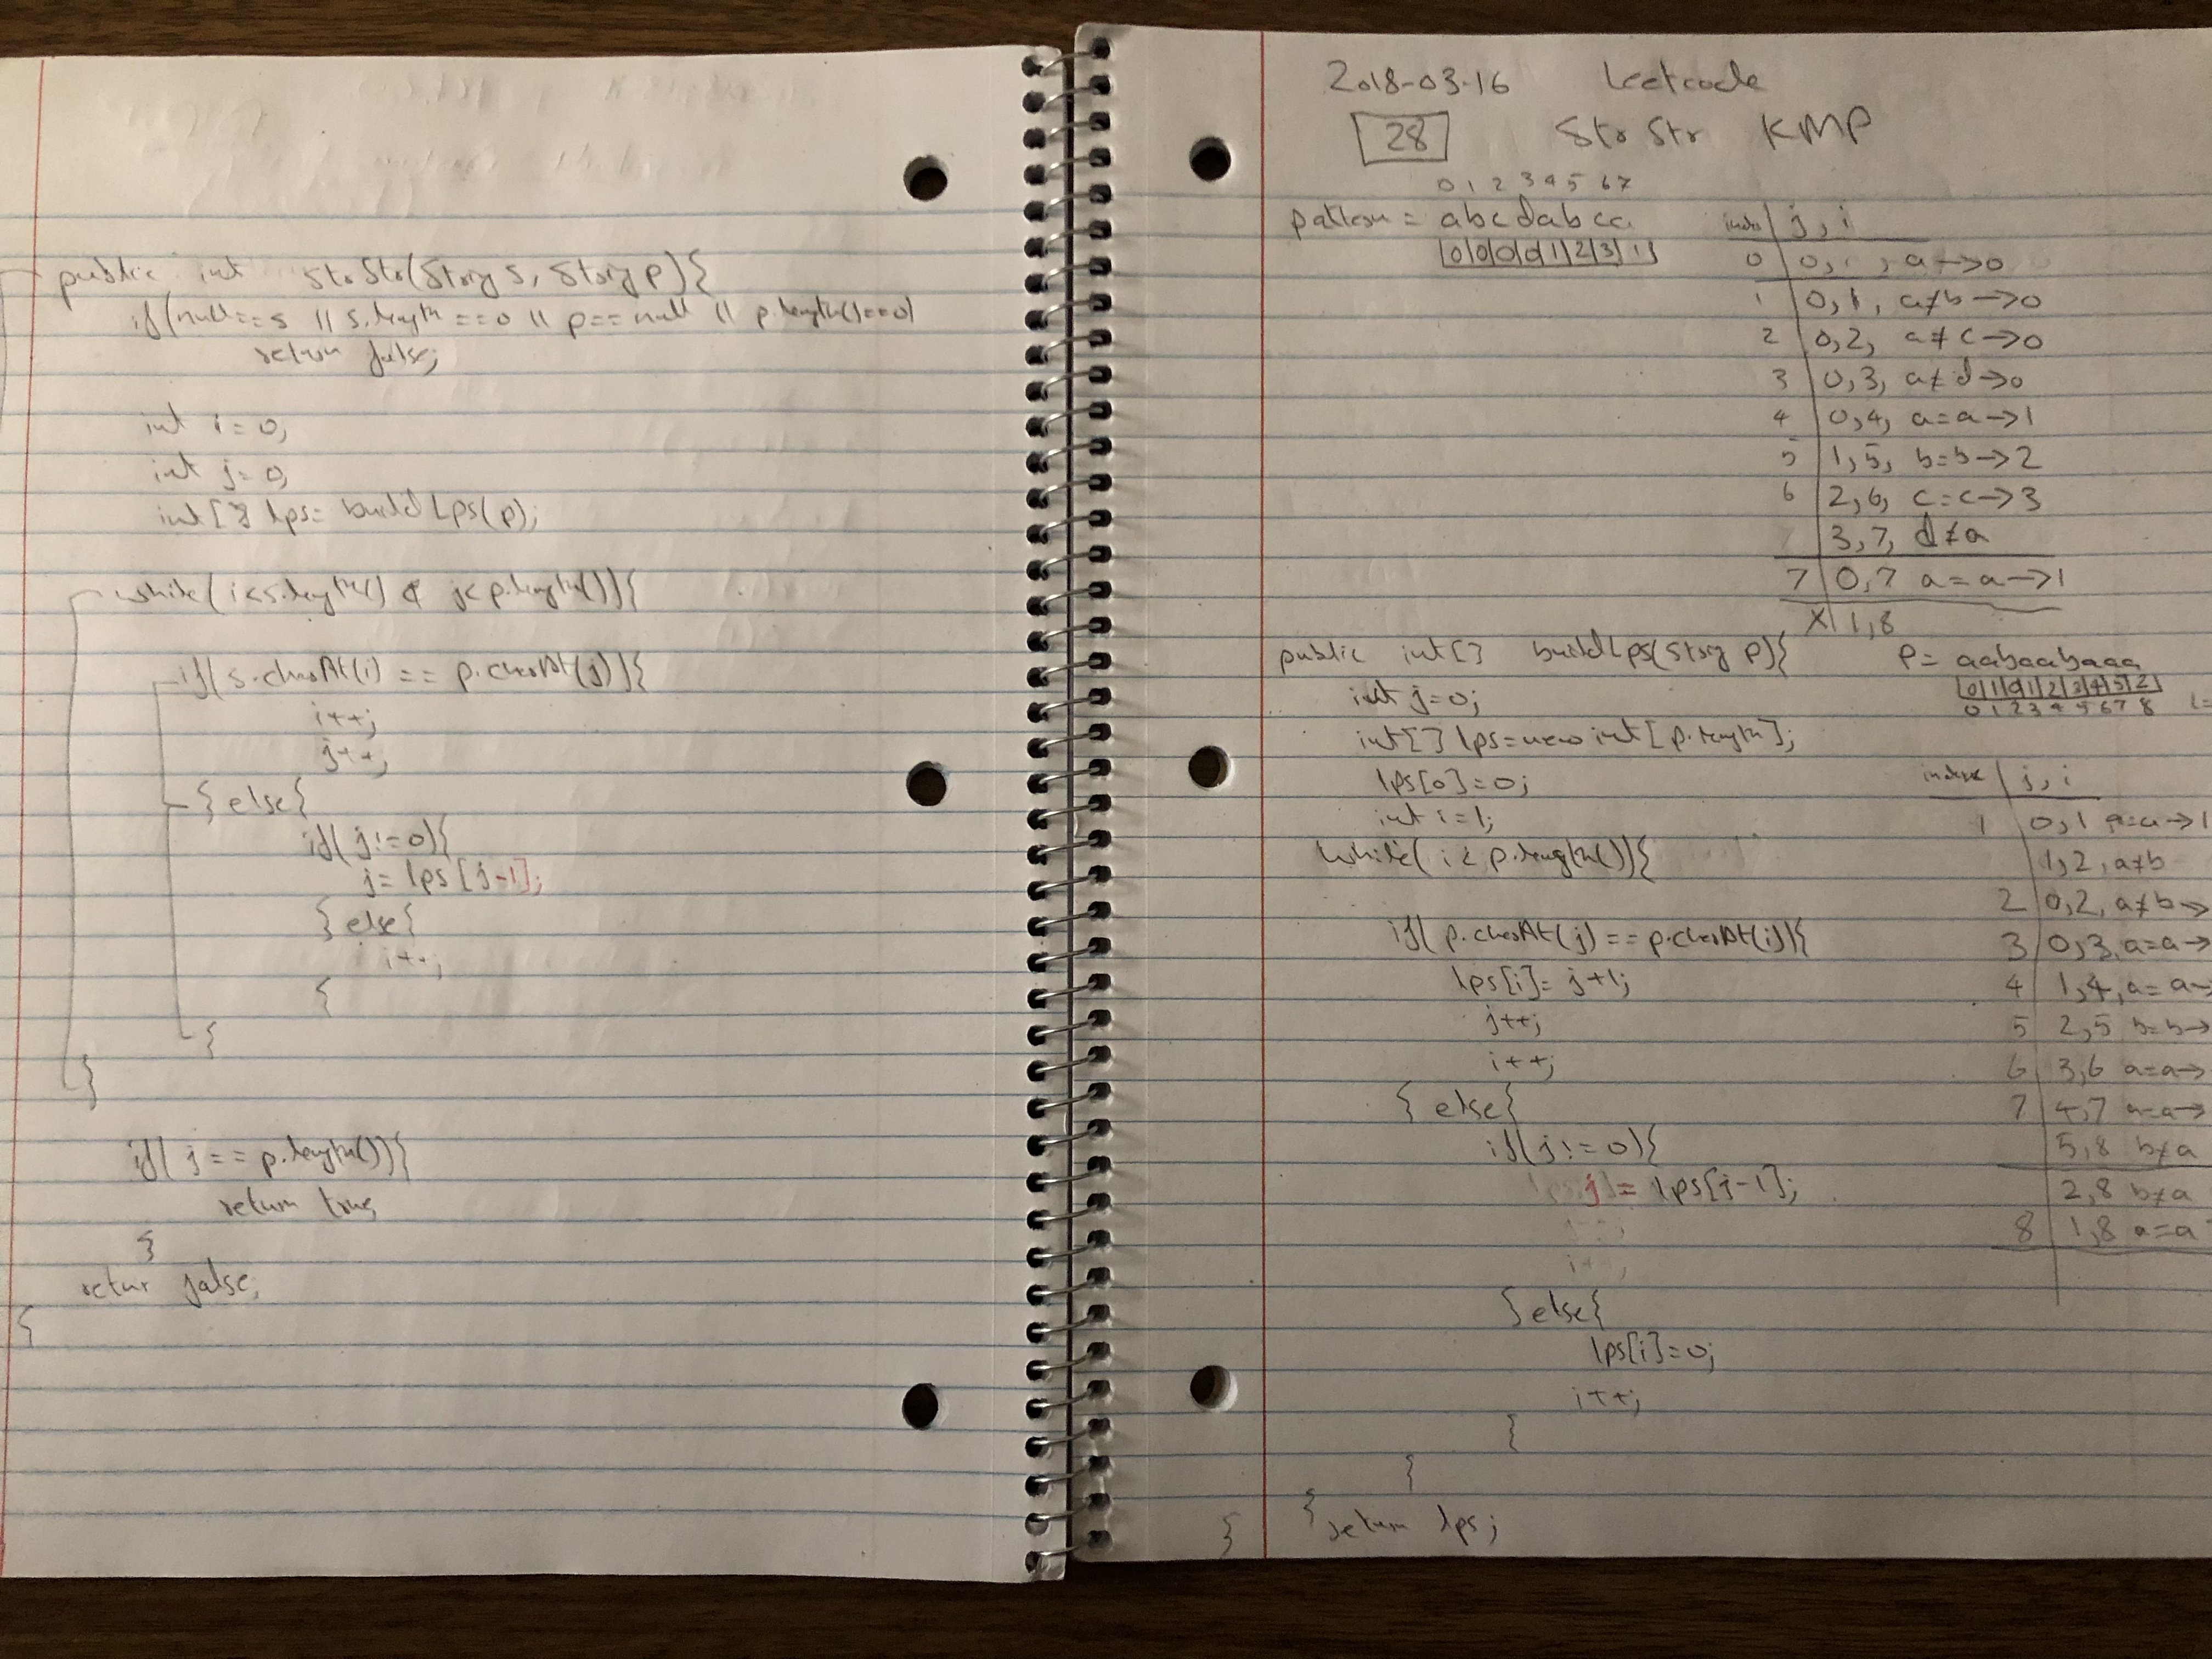 public int StrStr(String s, String p){
if(null==s || s.length==0 || p==null || p.length()==0)
return false;
int i=0;
int j=0;
int[] lps= buildLps(p);
while(i<s.length() & j<p.length()){
if(s.charAt(i) == p.charAt(j)){
i++;
j++;
} else{
if(j!=0){
j= lps[j-1];
} else{
i++;
}
}
}
if(j==p.length()){
return true;
}
retur false;
}
2018-03-16 Leetcode
28 StrStr KMP
0 1 2 3 4 5 6 7
pattern = abcdabca
0|0|0|0|1|2|3|1
index | j, i
0 | 0, , a->0
1 | 0,1, a≠b->0
2 | 0,2, a≠c->0
3 | 0,3, a≠d->0
4 | 0,4, a=a->1
5 | 1,5, b=b->2
6 | 2,6, c=c->3
3,7, d≠a
7 | 0,7 a=a->1
X | 1,8
public int[] buildLps(String p){
int j=0;
int[] lps=new int[p.length];
lps[0]=0;
int i=1;
while(i<p.length()){
if(p.charAt(j)==p.charAt(i)){
lps[i]=j+1;
j++;
i++;
} else{
if(j!=0){
j= lps[j-1];
} else{
lps[i]=0;
i++;
}
}
} return lps;
}
P= aabaabaaa
0|1|0|1|2|3|4|5|2
0 1 2 3 4 5 6 7 8
index | j, i
1 | 0,1 a=a->1
1,2, a≠b
2 | 0,2, a≠b->
3 | 0,3, a=a->
4 | 1,4, a=a->
5 | 2,5 b=b->
6 | 3,6 a=a->
7 | 4,7 a=a->
5,8 b≠a
2,8 b≠a
8 | 1,8 a=a